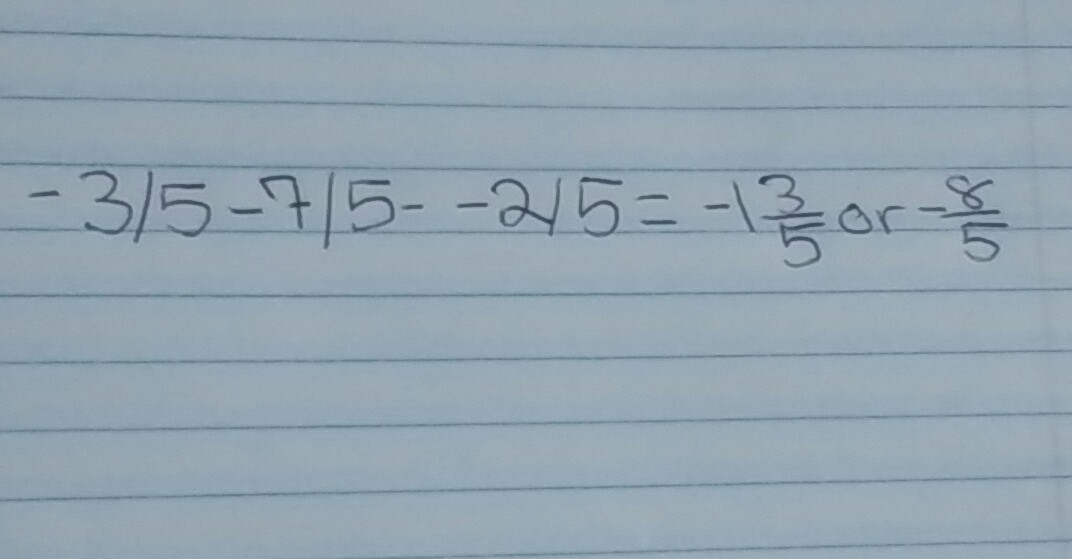 -3/5-7/5--2/5=-1 3/5 or -8/5